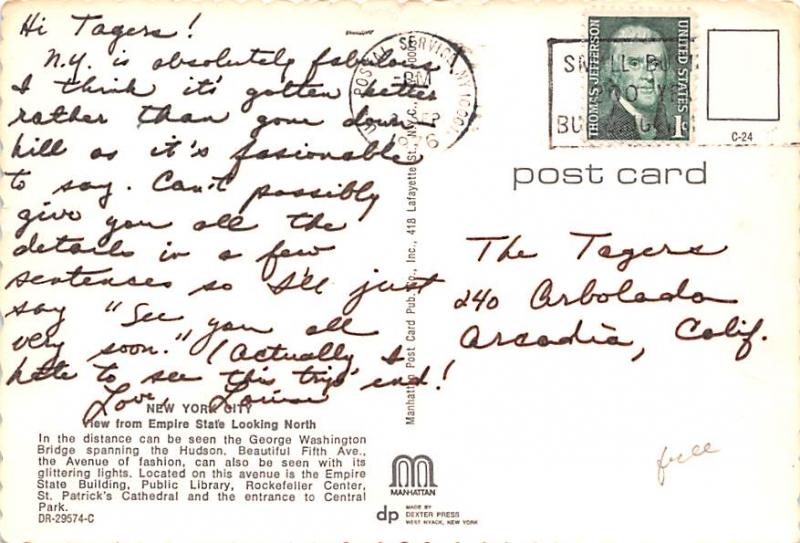 Hi Tagers!
N.Y. is absolutely fabulous
I think it's gotten better
rather than gone down-
hill as it's fasionable
to say. Can't possibly
give you all the
details in a few
sentences so I'll just
say "See you all
very soon." (Actually I
hate to see this trip end!
Love, Louise
NEW YORK CITY
View from Empire State Looking North
In the distance can be seen the George Washington
Bridge spanning the Hudson. Beautiful Fifth Ave.,
the Avenue of fashion, can also be seen with its
glittering lights. Located on this avenue is the Empire
State Building, Public Library, Rockefeller Center,
St. Patrick's Cathedral and the entrance to Central
Park.
DR-29574-C
Manhattan Post Card Pub. Co., Inc., 418 Lafayette St., N.Y.C.,
POSTAL SERVICE, NY
PM
SEP
THOMAS JEFFERSON
UNITED STATES
1c
C-24
post card
The Tagers
240 Arbolada
Arcadia, Calif.
free
MANHATTAN
dp
MADE BY
DEXTER PRESS
WEST NYACK, NEW YORK